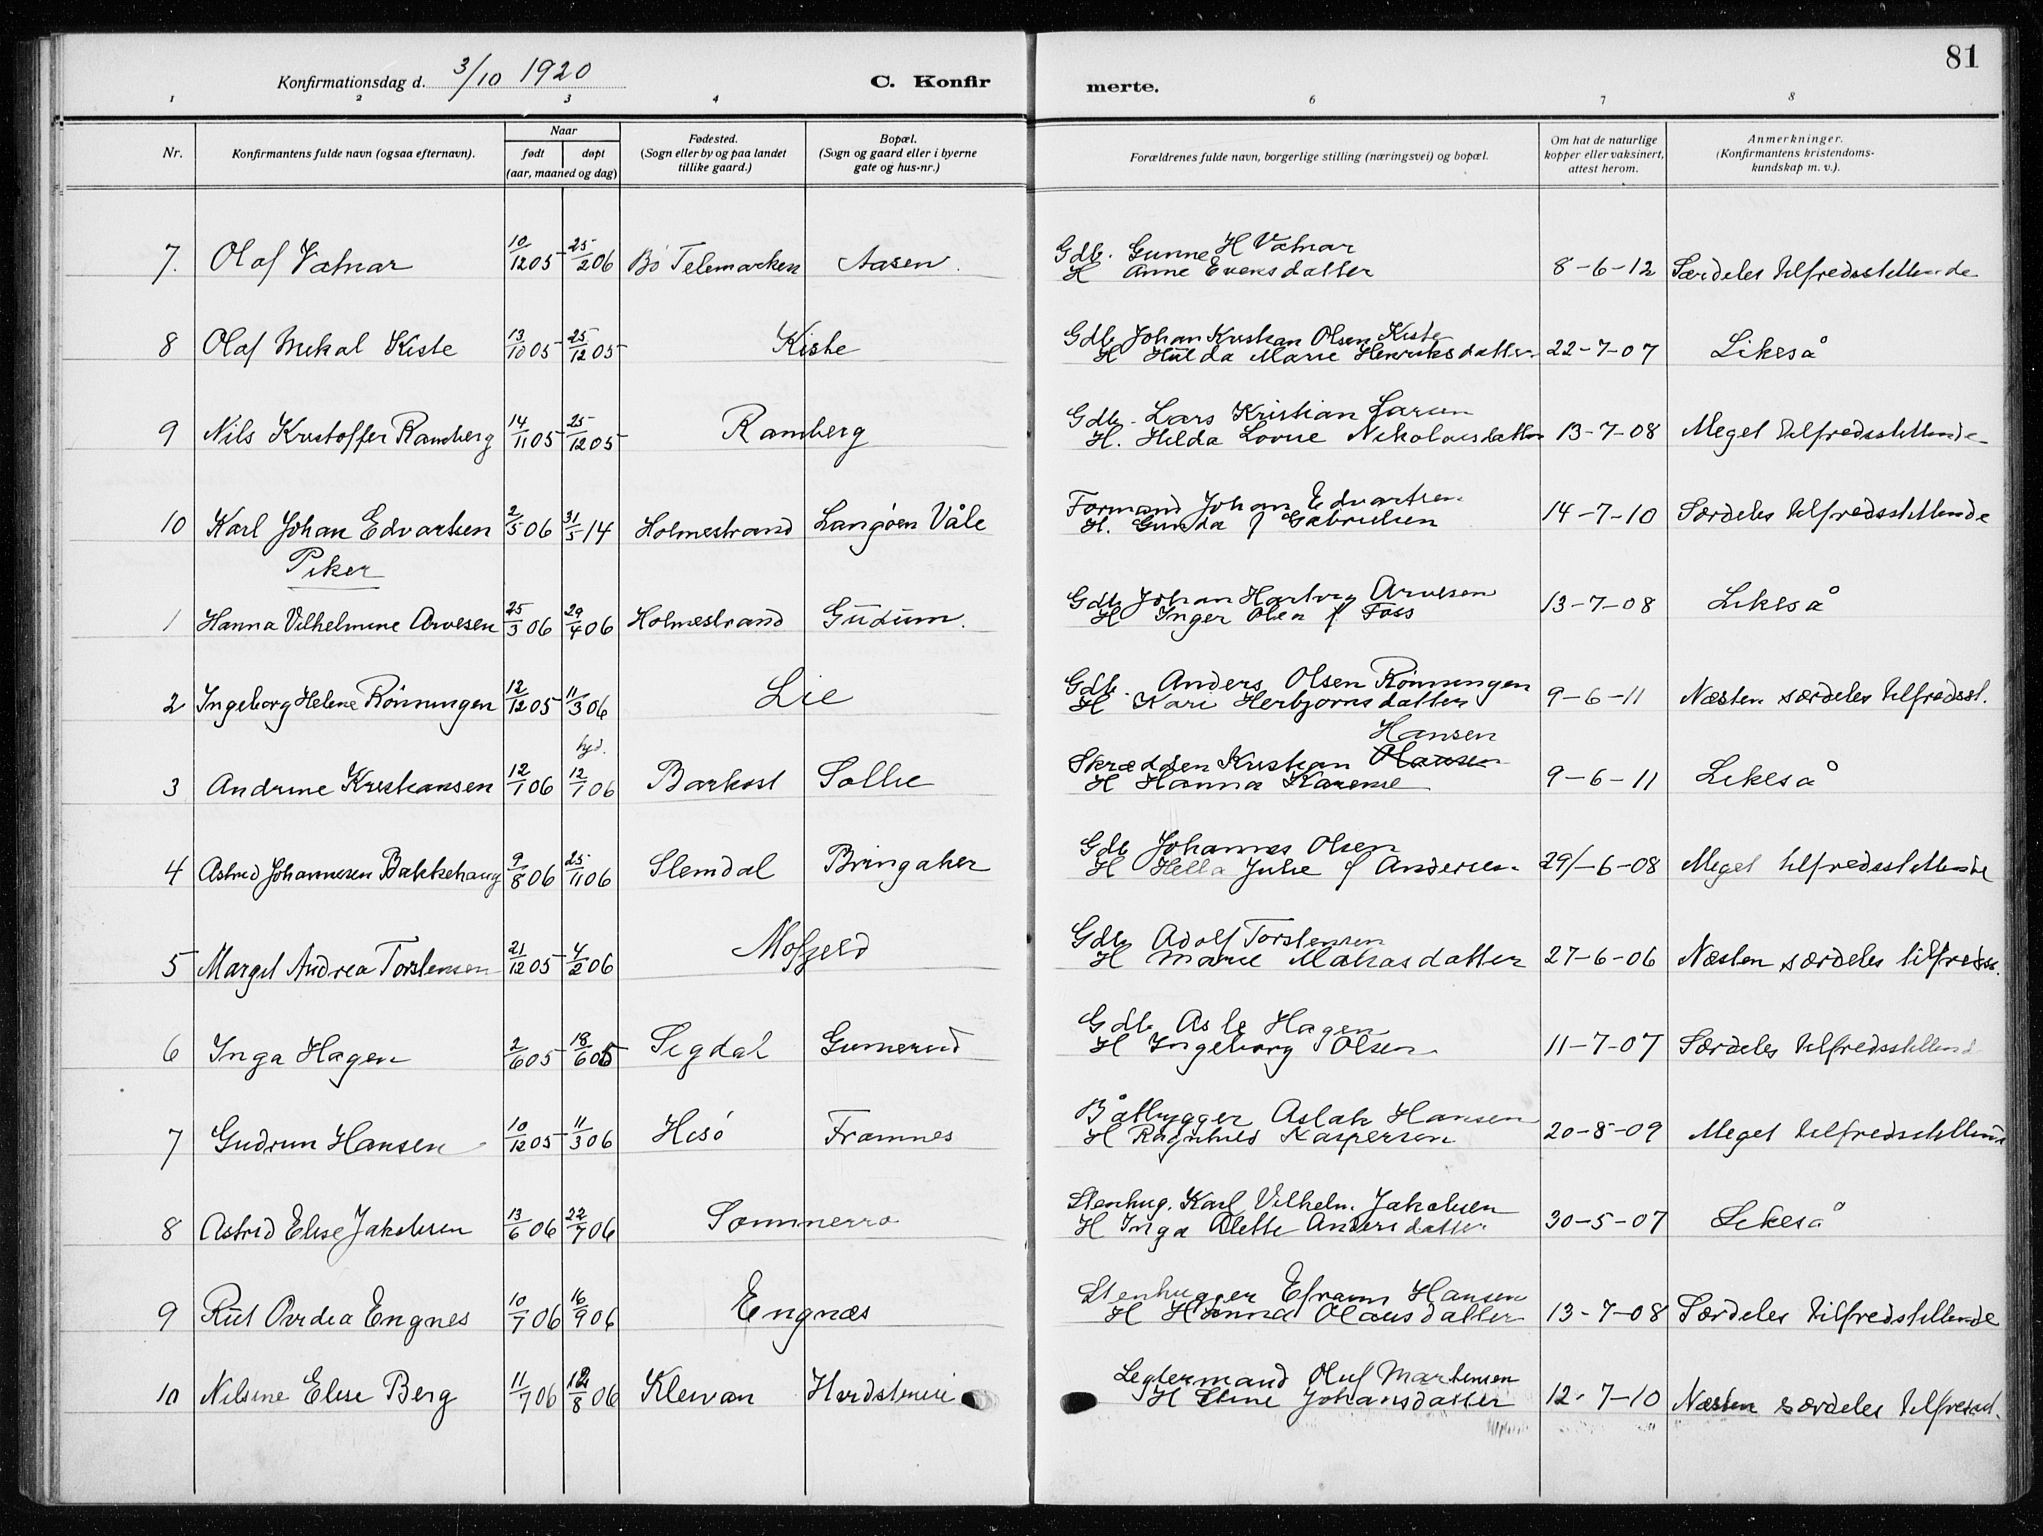 81
Konfirmationsdag d. 3/10 1920 C. Konfirmerte.
1 2 3 4 6 7 8
Nr. Konfirmantens fulde navn (ogsaa efternavn). Naar født døpt (aar, maaned og dag) Fødested. (Sogn eller by og paa landet tillike gaard.) Bopæl. (Sogn og gaard eller i byerne gate og hus-nr.) Forældrenes fulde navn, borgerlige stilling (næringsvei) og bopæl. Om hat de naturlige kopper eller vaksinert, attest herom. Anmerkninger. (Konfirmantens kristendoms-kundskap m. v.).
7. Olaf Vatnar 10/12 05 25/2 06 Bö Telemarken Aasen. Gdb. Gunne H Vatnar
H Anne Evensdatter 8-6-12 Særdeles tilfredsstillende
8 Olaf Mikal Kiste 13/10 05 25/12 05 Kiste Gdb Johan Kristian Olsen Kiste
H Hulda Marie Henriksdatter 22-7-07 Likeså
9 Nils Kristoffer Ramberg 14/11 05 25/12 05 Ramberg Gdb. Lars Kristian Larsen
H. Hilda Lovise Nikolaisdatter 13-7-08 Meget tilfredsstillende
10 Karl Johan Edvartsen 2/5 06 31/5 14 Holmestrand Langöen Våle Formand Johan Edvartsen
H. Gunda f Gabrielsen 14-7-10 Særdeles tilfredsstillende
Piker
1 Hanna Vilhelmine Arvesen 25/3 06 29/4 06 Holmestrand Gudum. Gdb Johan Hartvig Arvesen
H Inger Olea f Foss 13-7-08 Likeså
2 Ingeborg Helene Rönningen 12/12 05 11/3 06 Lie Gdb. Anders Olsen Rönningen
H Kari Herbjornsdatter 9-6-11 Næsten særdeles tilfredsst.
3 Andrine Kristiansen 12/1 06 hjd. 12/1 06 Barkost Sollie Skrædder Kristian Hansen
H Hanna Karense 9-6-11 Likeså
4 Astrid Johannesen Bakkehaug 9/8 06 25/11 06 Slemdal Bringaker Gdb Johannes Olsen
H Hella Julie f Andersen 29/-6-08 Meget tilfredsstillende
5 Margit Andrea Torstensen 21/12 05 4/2 06 Mofjeld Gdb Adolf Torstensen
H Marie Makasdatter 27-6-06 Næsten særdeles tilfredss.
6 Inga Hagen 2/6 05 18/6 05 Sigdal Gunnerud Gdb Asle Hagen
H Ingeborg Olsen 11-7-07 Særdeles tilfredsstillend
7 Gudrun Hansen 10/12 05 11/3 06 Hisö Framnes Båtbygger Aslak Hansen
H Kaspersen 20-8-09 Meget tilfredsstillende
8 Astrid Elise Jakobsen 13/6 06 22/7 06 Sommerro Stenhug. Karl Vilhelm Jakobsen
H Inga Alette Andersdatter 30-5-07 Likeså
9 Rut Ovidia Engnes 10/7 06 16/9 06 Engnæs Stenhugger Efraim Hansen
H Hanna Olausdatter 13-7-08 Særdeles tilfredstillende
10 Nilsine Elise Berg 11/7 06 12/8 06 Klevan Legtermand Oluf Martinsen
H Stine Johansdatter 12-7-10 Næsten særdeles tilfredsst.